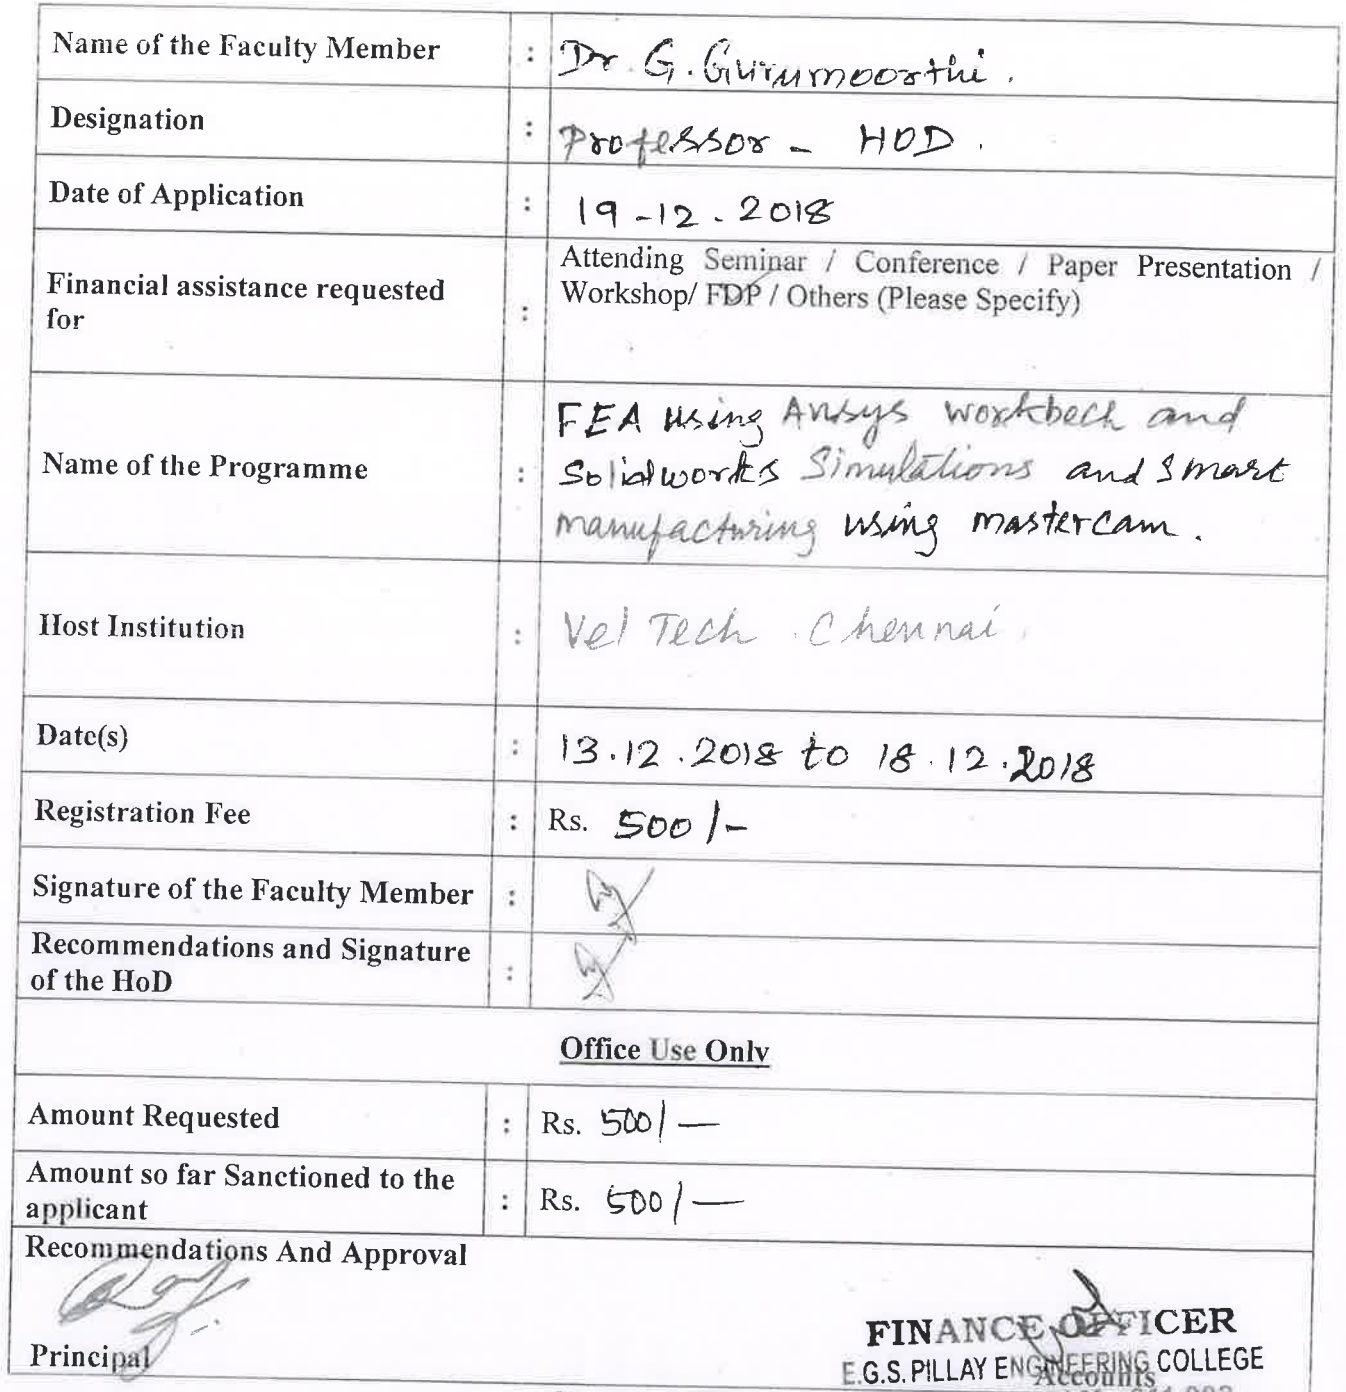 Name of the Faculty Member : Dr. G. Gurumoorthi.
Designation : Professor - HOD.
Date of Application : 19-12.2018
Financial assistance requested
for
:
Attending Seminar / Conference / Paper Presentation /
Workshop/ FDP / Others (Please Specify)
Name of the Programme :
FEA using Ansys workbech and
Solidworks Simulations and smart
manufacturing using mastercam.
Host Institution : Vel Tech Chennai.
Date(s) : 13.12.2018 to 18.12.2018
Registration Fee : Rs. 500/-
Signature of the Faculty Member :
Recommendations and Signature
of the HoD
:
Office Use Only
Amount Requested : Rs. 500/-
Amount so far Sanctioned to the
applicant
: Rs. 500/-
Recommendations And Approval
Principal
FINANCE OFFICER
E.G.S. PILLAY ENGINEERING COLLEGE
Accounts